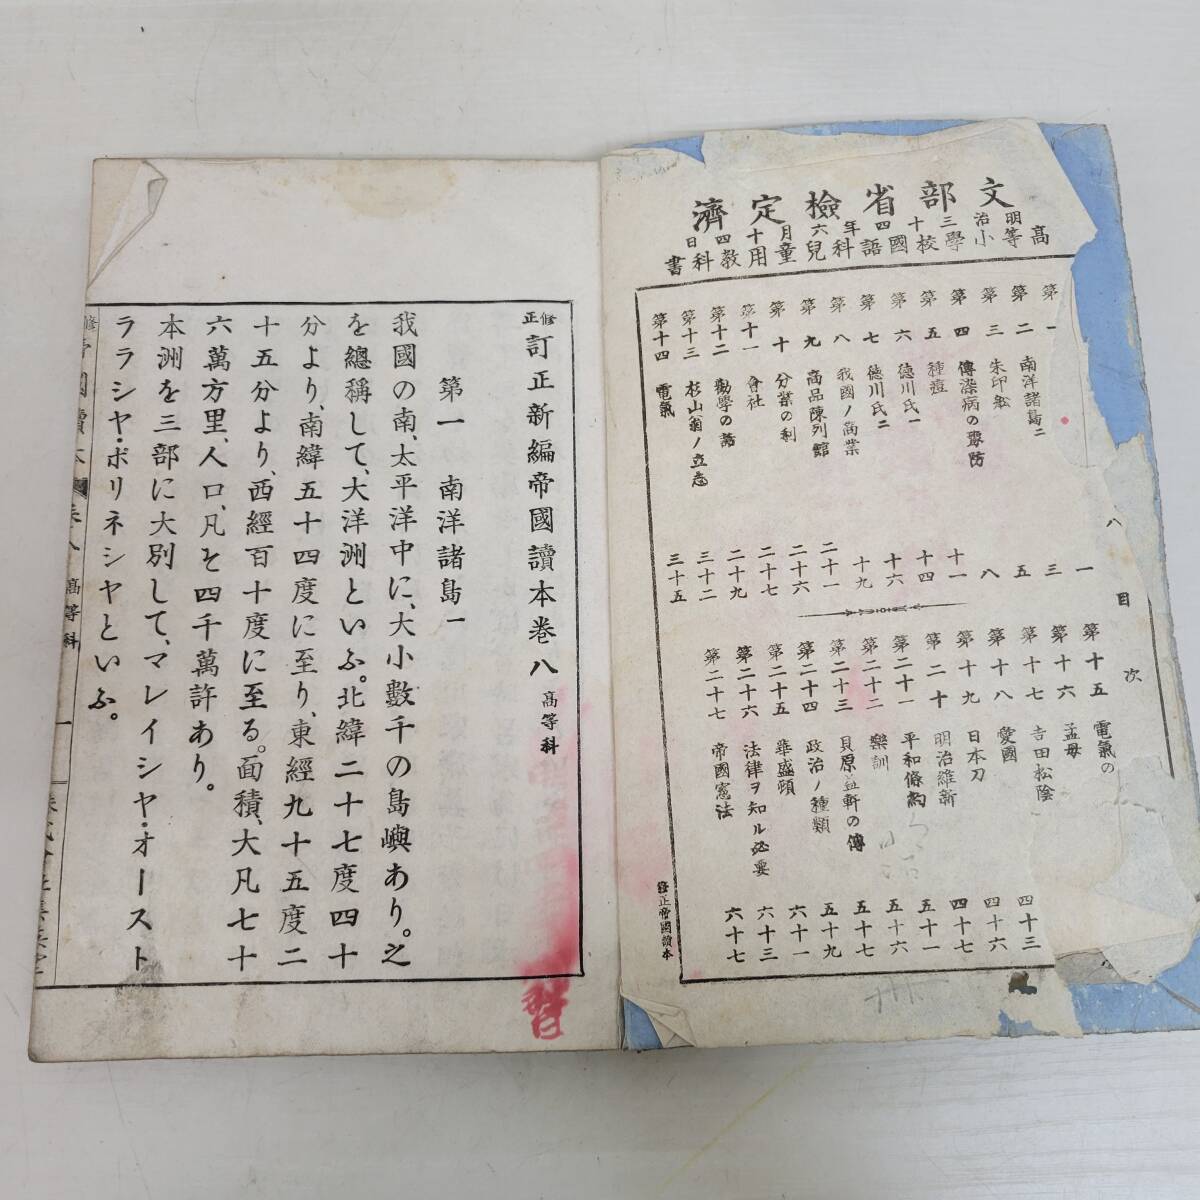 文部省檢定濟
明治三十四年六月十四日
高等小學校國語科兒童用教科書
八 目次
第一
第二 南洋諸島二 一
第三 朱印船 三
第四 傳染病の豫防 五
第五 種痘 八
第六 德川氏一 十一
第七 德川氏二 十四
第八 我國ノ商業 十六
第九 商品陳列館 十九
第十 分業の利 二十一
第十一 會社 二十六
第十二 勸學の語 二十七
第十三 杉山翁ノ立志 二十九
第十四 電氣 三十二
三十五
第十五 電氣の
第十六 孟母
第十七 吉田松陰
第十八 愛國 四十三
第十九 日本刀 四十六
第二十 明治維新 四十七
第二十一 平和條約 五十一
第二十二 樂訓 五十六
第二十三 貝原益軒の傳 五十七
第二十四 政治ノ種類 五十九
第二十五 華盛頓 六十一
第二十六 法律ヲ知ル必要 六十三
第二十七 帝國憲法 六十七
修正帝國讀本
修正 訂正新編帝國讀本卷八 高等科
第一 南洋諸島一
我國の南、太平洋中に、大小數千の島嶼あり。之
を總稱して、大洋洲といふ。北緯二十七度四十
分より、南緯五十四度に至り、東經九十五度二
十五分より、西經百十度に至る。面積、大凡七十
六萬方里、人口、凡そ四千萬許あり。
本洲を三部に大別して、マレイシヤ・オースト
ララシヤ・ポリネシヤといふ。
帝國讀本 卷八 高等科 一